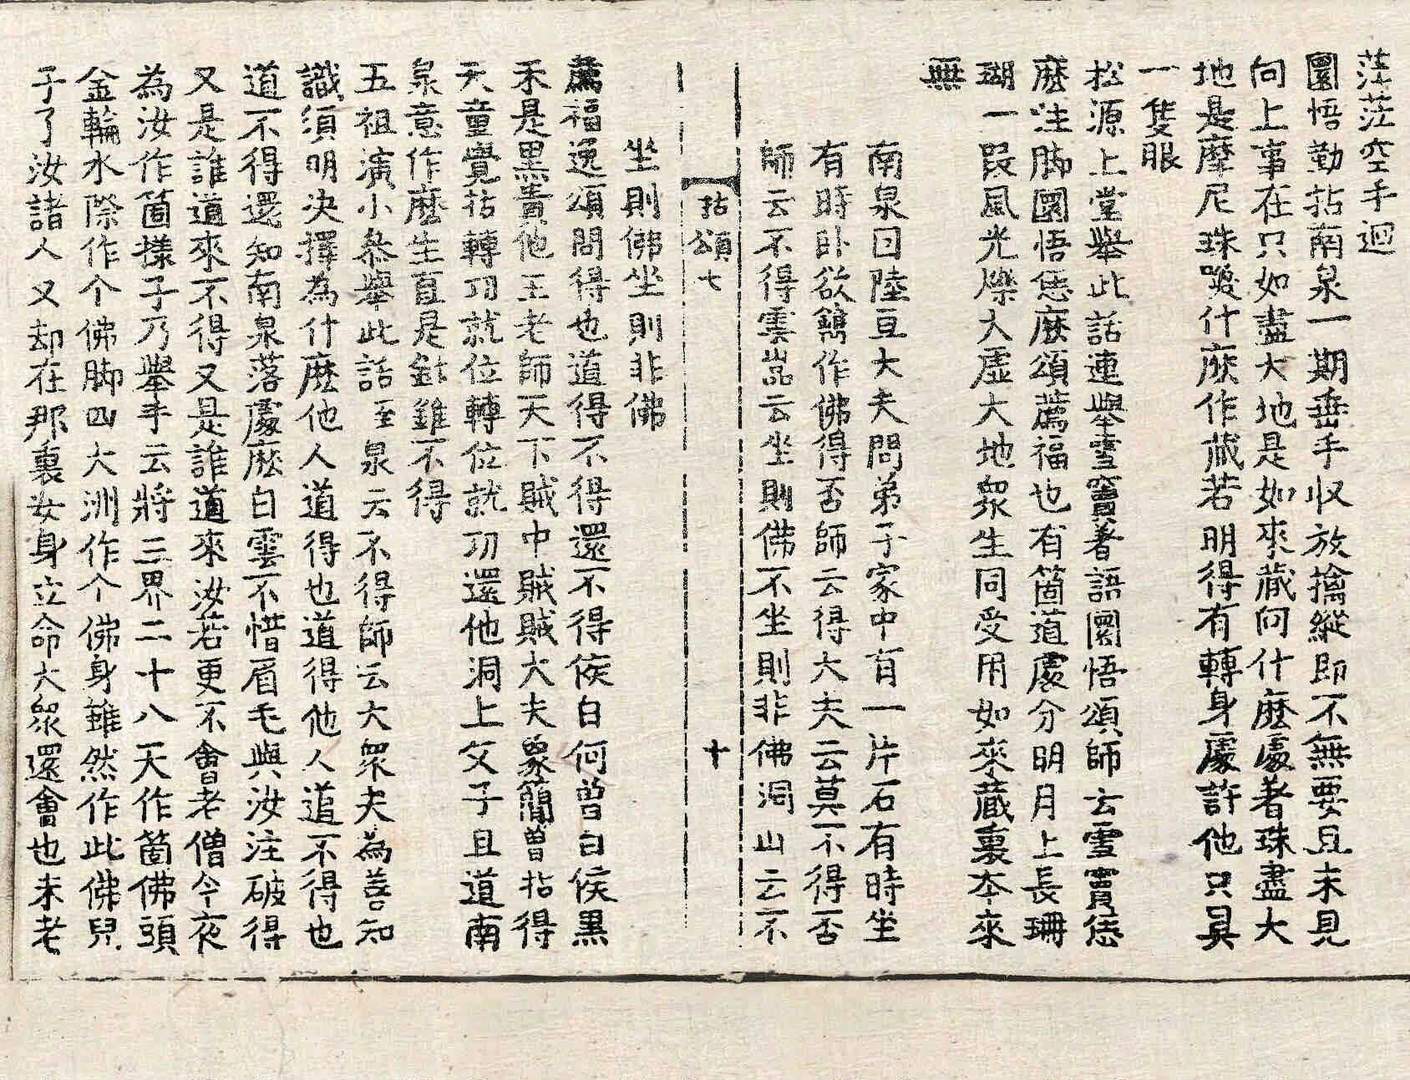 茫茫空手迴
圜悟勤拈南泉一期垂手收放擒縱即不無要且未見
向上事在只如盡大地是如來藏向什麽處著珠盡大
地是摩尼珠喚什麽作藏若明得有轉身處許他只具
一隻眼
松源上堂舉此話連舉雪竇著語圜悟頌師云雪竇恁
麽注脚圜悟恁麽頌薦福也有箇道處分明月上長珊
瑚一段風光爍大虛大地衆生同受用如來藏裏夲來
無
南泉因陸亘大夫問弟子家中有一片石有時坐
有時卧欲鐫作佛得否師云得大夫云莫不得否
師云不得雲嵓云坐則佛不坐則非佛洞山云不
拈頌七 十
坐則佛坐則非佛
薦福逸頌問得也道得不得還不得侯白何曾白侯黑
未是黑貴他王老師天下賊中賊賊大夫象簡曾拈得
天童覺拈轉功就位轉位就功還他洞上父子且道南
泉意作麽生直是針錐不得
五祖演小叅舉此話至泉云不得師云大衆夫為善知
識須明决擇為什麽他人道得也道得他人道不得也
道不得還知南泉落處麽白雲不惜眉毛與汝注破得
又是誰道來不得又是誰道來汝若更不會老僧今夜
為汝作箇樣子乃舉手云將三界二十八天作箇佛頭
金輪水際作个佛脚四大洲作个佛身雖然作此佛兒
子了汝諸人又却在那裏安身立命大衆還會也未老